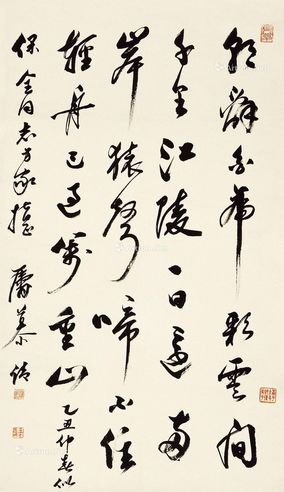 朝辭白帝彩雲間
千里江陵一日還兩
岸猿聲啼不住
輕舟已過萬重山乙丑仲春似
保金同志方家指正